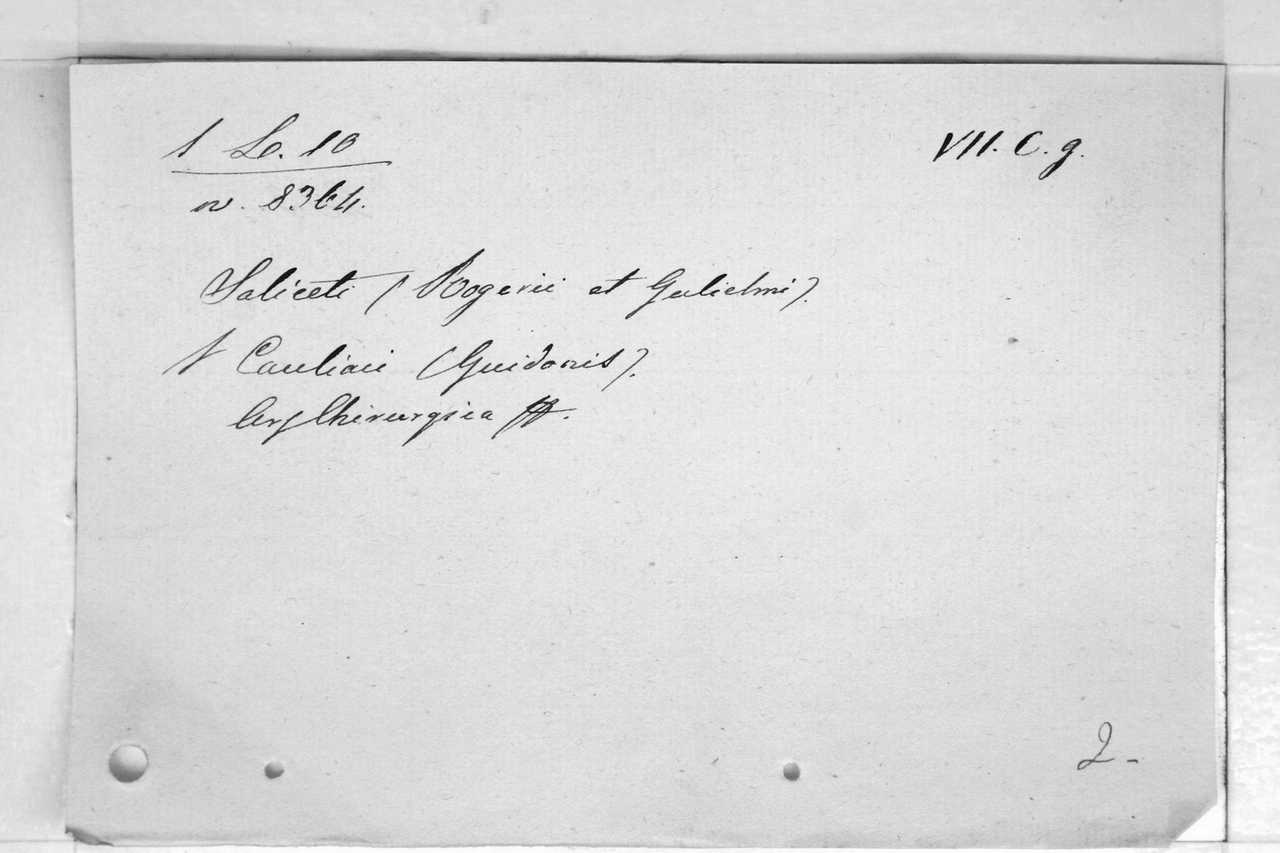 1 Lo. 10
VII. C. g.
n. 8364.
Saliceti (Rogerii et Gulielmi).
Cauliaci (Guidonis).
Chirurgica
2-